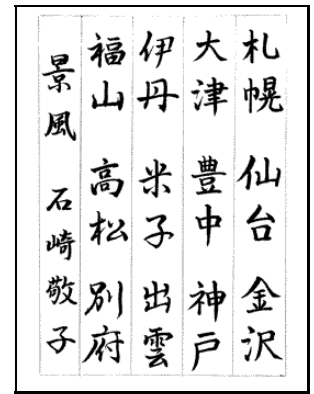 札幌 仙台 金沢
大津 豊中 神戸
伊丹 米子 出雲
福山 高松 別府
景風 石崎敬子